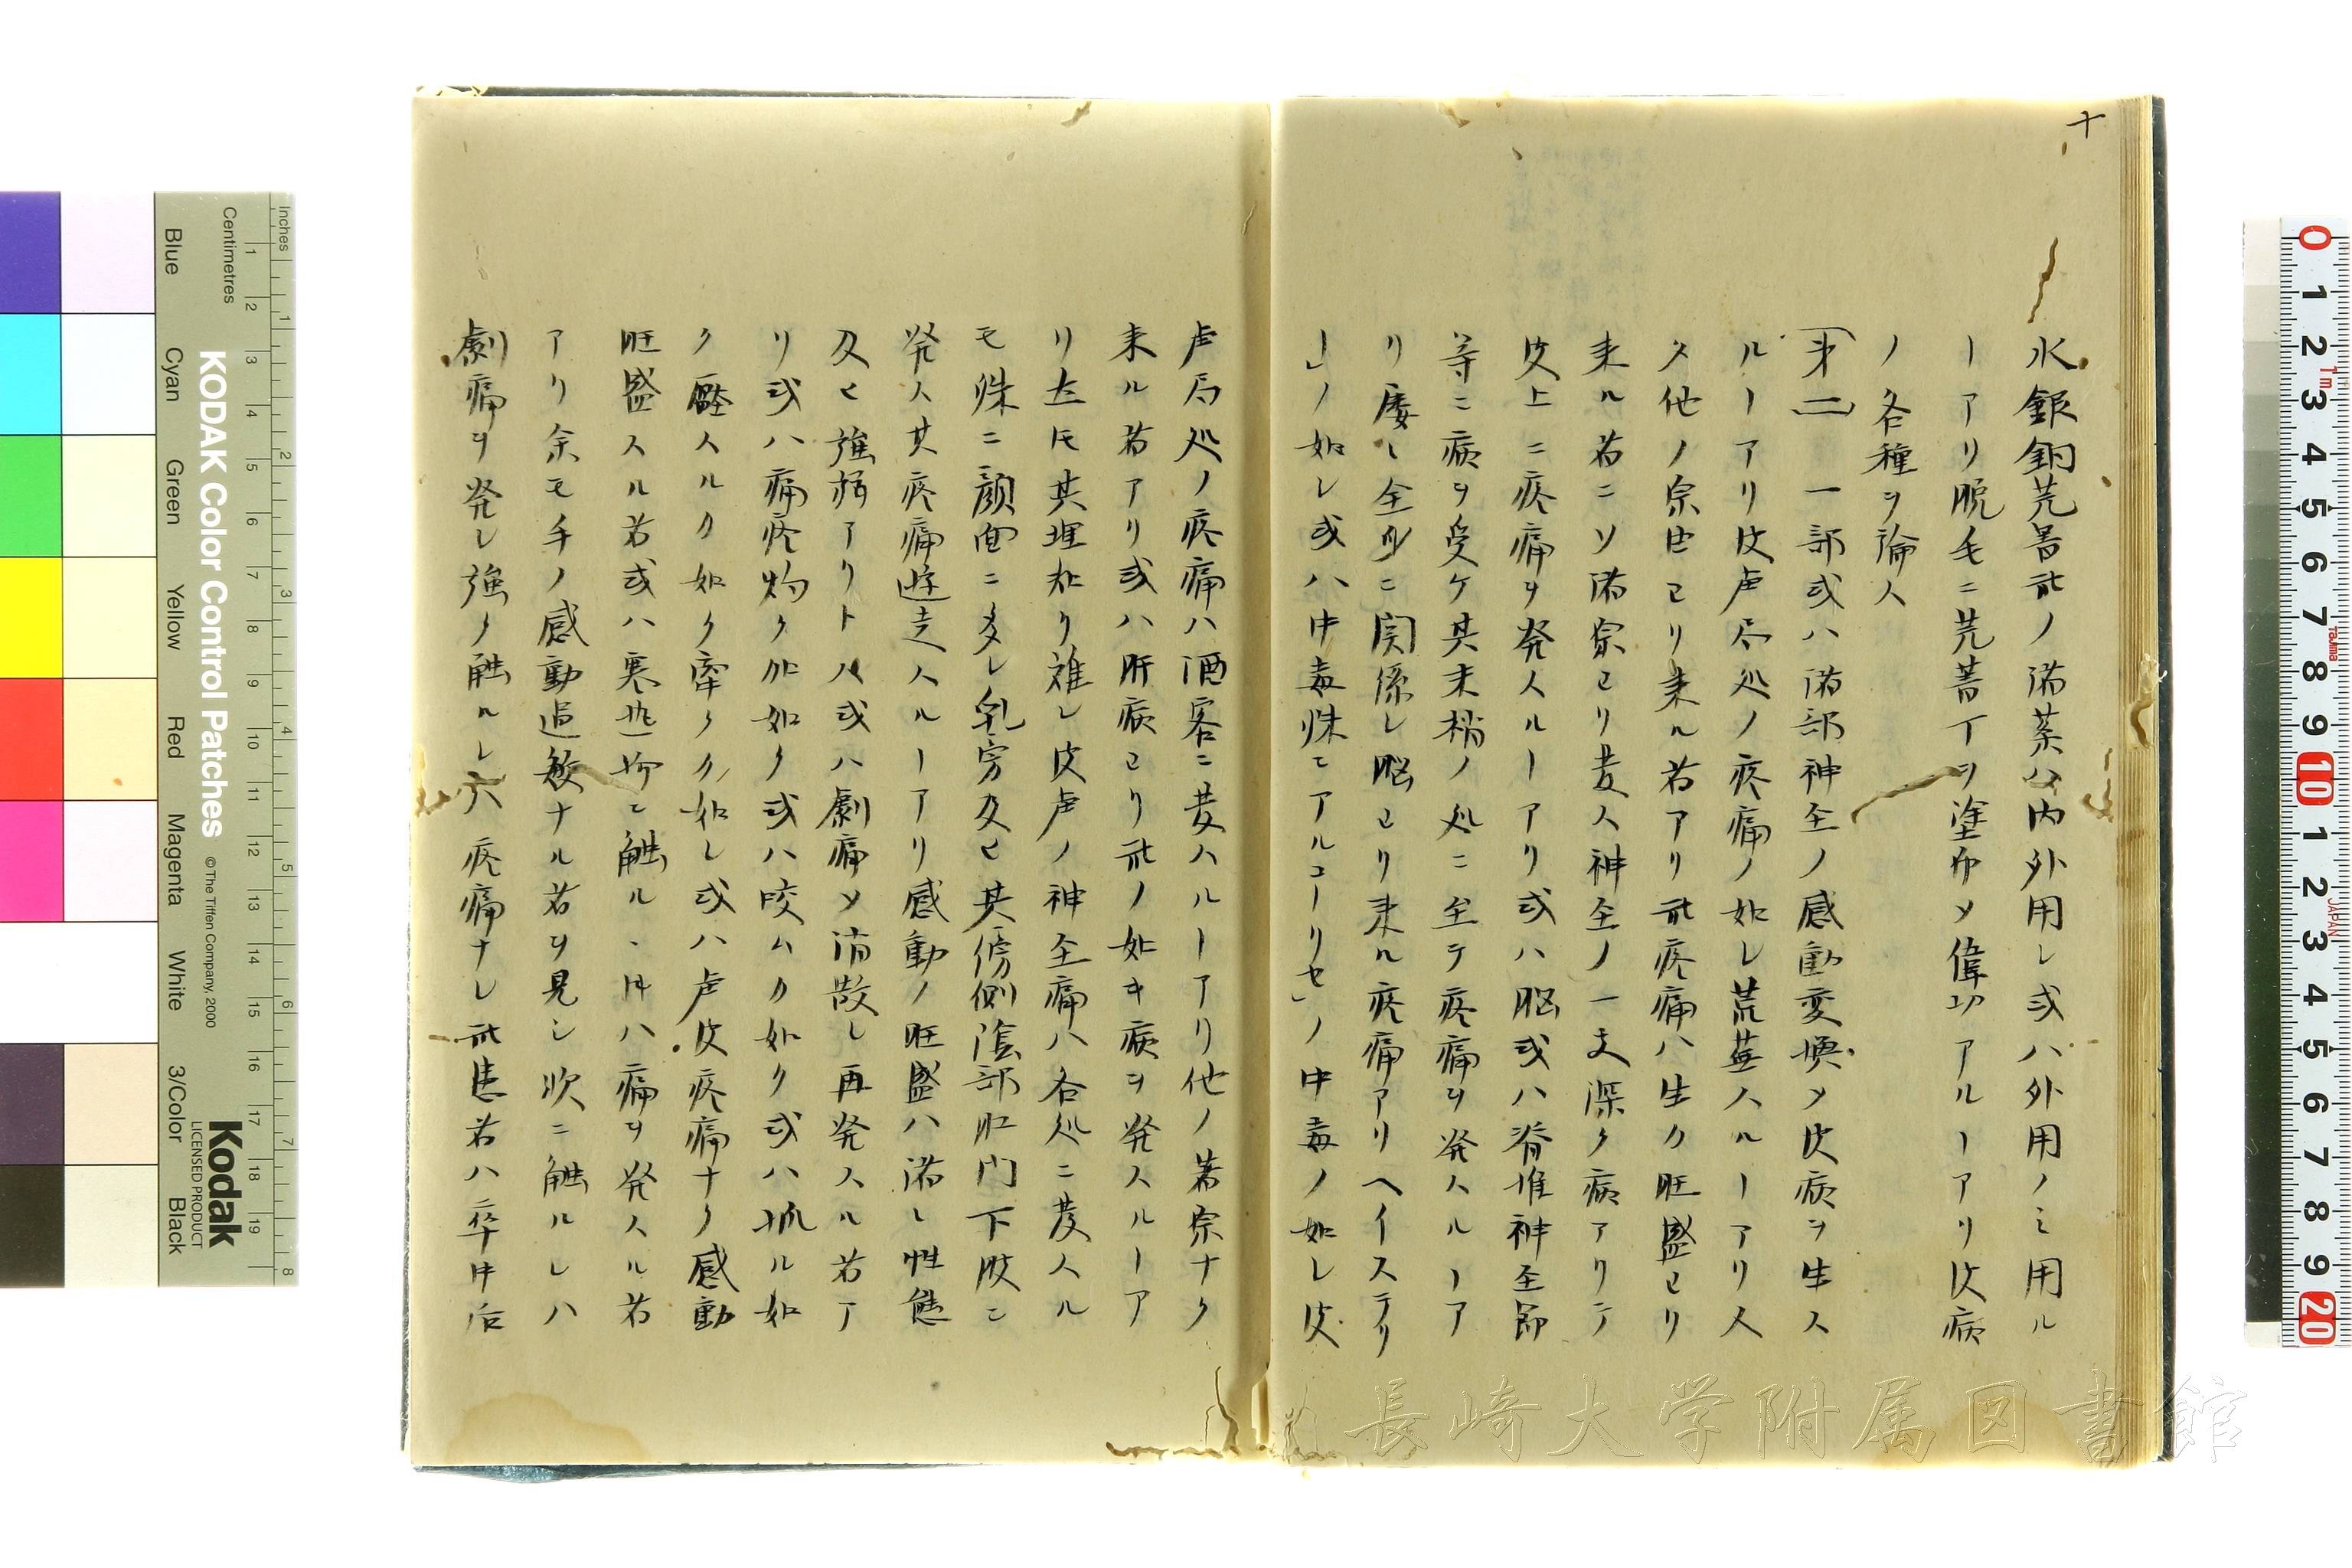 十
水銀銅芫菁䓁ノ諸薬ハ内外用シ或ハ外用ノミ用ル
ヿアリ脱毛ニ芫菁丁ヲ塗布メ偉功アルヿアリ皮病
ノ各種ヲ論ス
第二 一部或ハ諸部神至ノ感動変換メ皮病ヲ生ス
ルヿアリ皮膚局処ノ疼痛ノ如シ荒蕪スルヿアリ又
タ他ノ宗因ヨリ来ル者アリ此疼痛ハ生力旺盛ヨリ
来ル者ニソ諸宗ヨリ発ス神至ノ一支深ク病アリテ
皮上ニ疼痛ヲ発スルヿアリ或ハ脳或ハ脊椎神至節
等ニ病ヲ受ケ其末梢ノ処ニ至テ疼痛ヲ発スルヿア
リ屡々全身ニ関係シ脳ヨリ来ル疼痛アリヘイステリ
ー」ノ如シ或ハ中毒殊ニアルコーリセ」ノ中毒ノ如シ皮
膚局処ノ疼痛ハ酒客ニ発スルヿアリ他ノ著宗ナク
来ル者アリ或ハ肝病ヨリ此ノ如キ病ヲ発スルヿア
リ然𪜈其理和リ難シ皮膚ノ神至痛ハ各処ニ発スル
モ殊ニ顔面ニ多シ乳房及ヒ其傍側陰部肛門下肢ニ
発ス其疼痛遊走スルヿアリ感動ノ旺盛ハ諸々性態
及ヒ強弱アリトス或ハ劇痛メ消散シ再発スル者ア
リ或ハ痛疼灼クカ如ク或ハ咬ムカ如ク或ハ抓ル如
ク壓スルカ如ク牽クカ如シ或ハ膚皮疼痛ナク感動
旺盛スル者或ハ寒熱物ニ触ルヽ時ハ痛ヲ発スル者
アリ余モ手ノ感動過敏ナル者ヲ見シ次ニ触ルレハ
劇痛ヲ発シ強ク触ルレハ疼痛ナシ此患者ハ卒中后
Inches
Centimetres
KODAK Color Control Patches
©The Tiffen Company, 2000
Kodak
LICENSED PRODUCT
Blue
Cyan
Green
Yellow
Red
Magenta
White
3/Color
Black
長崎大学附属図書館
JAPAN